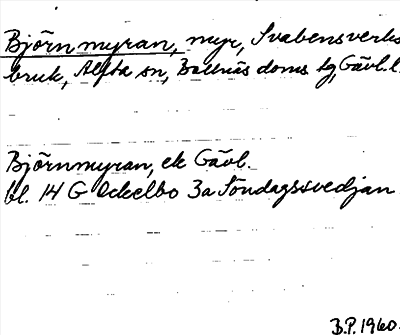 Björnmyran, myr, Svabensverks
bruk, Alfta sn, Bollnäs doms tg, Gävl. l.
Björnmyran, ek Gävl.
bl. 14 G Ockelbo 3a Söndagssvedjan
B.P. 1960.